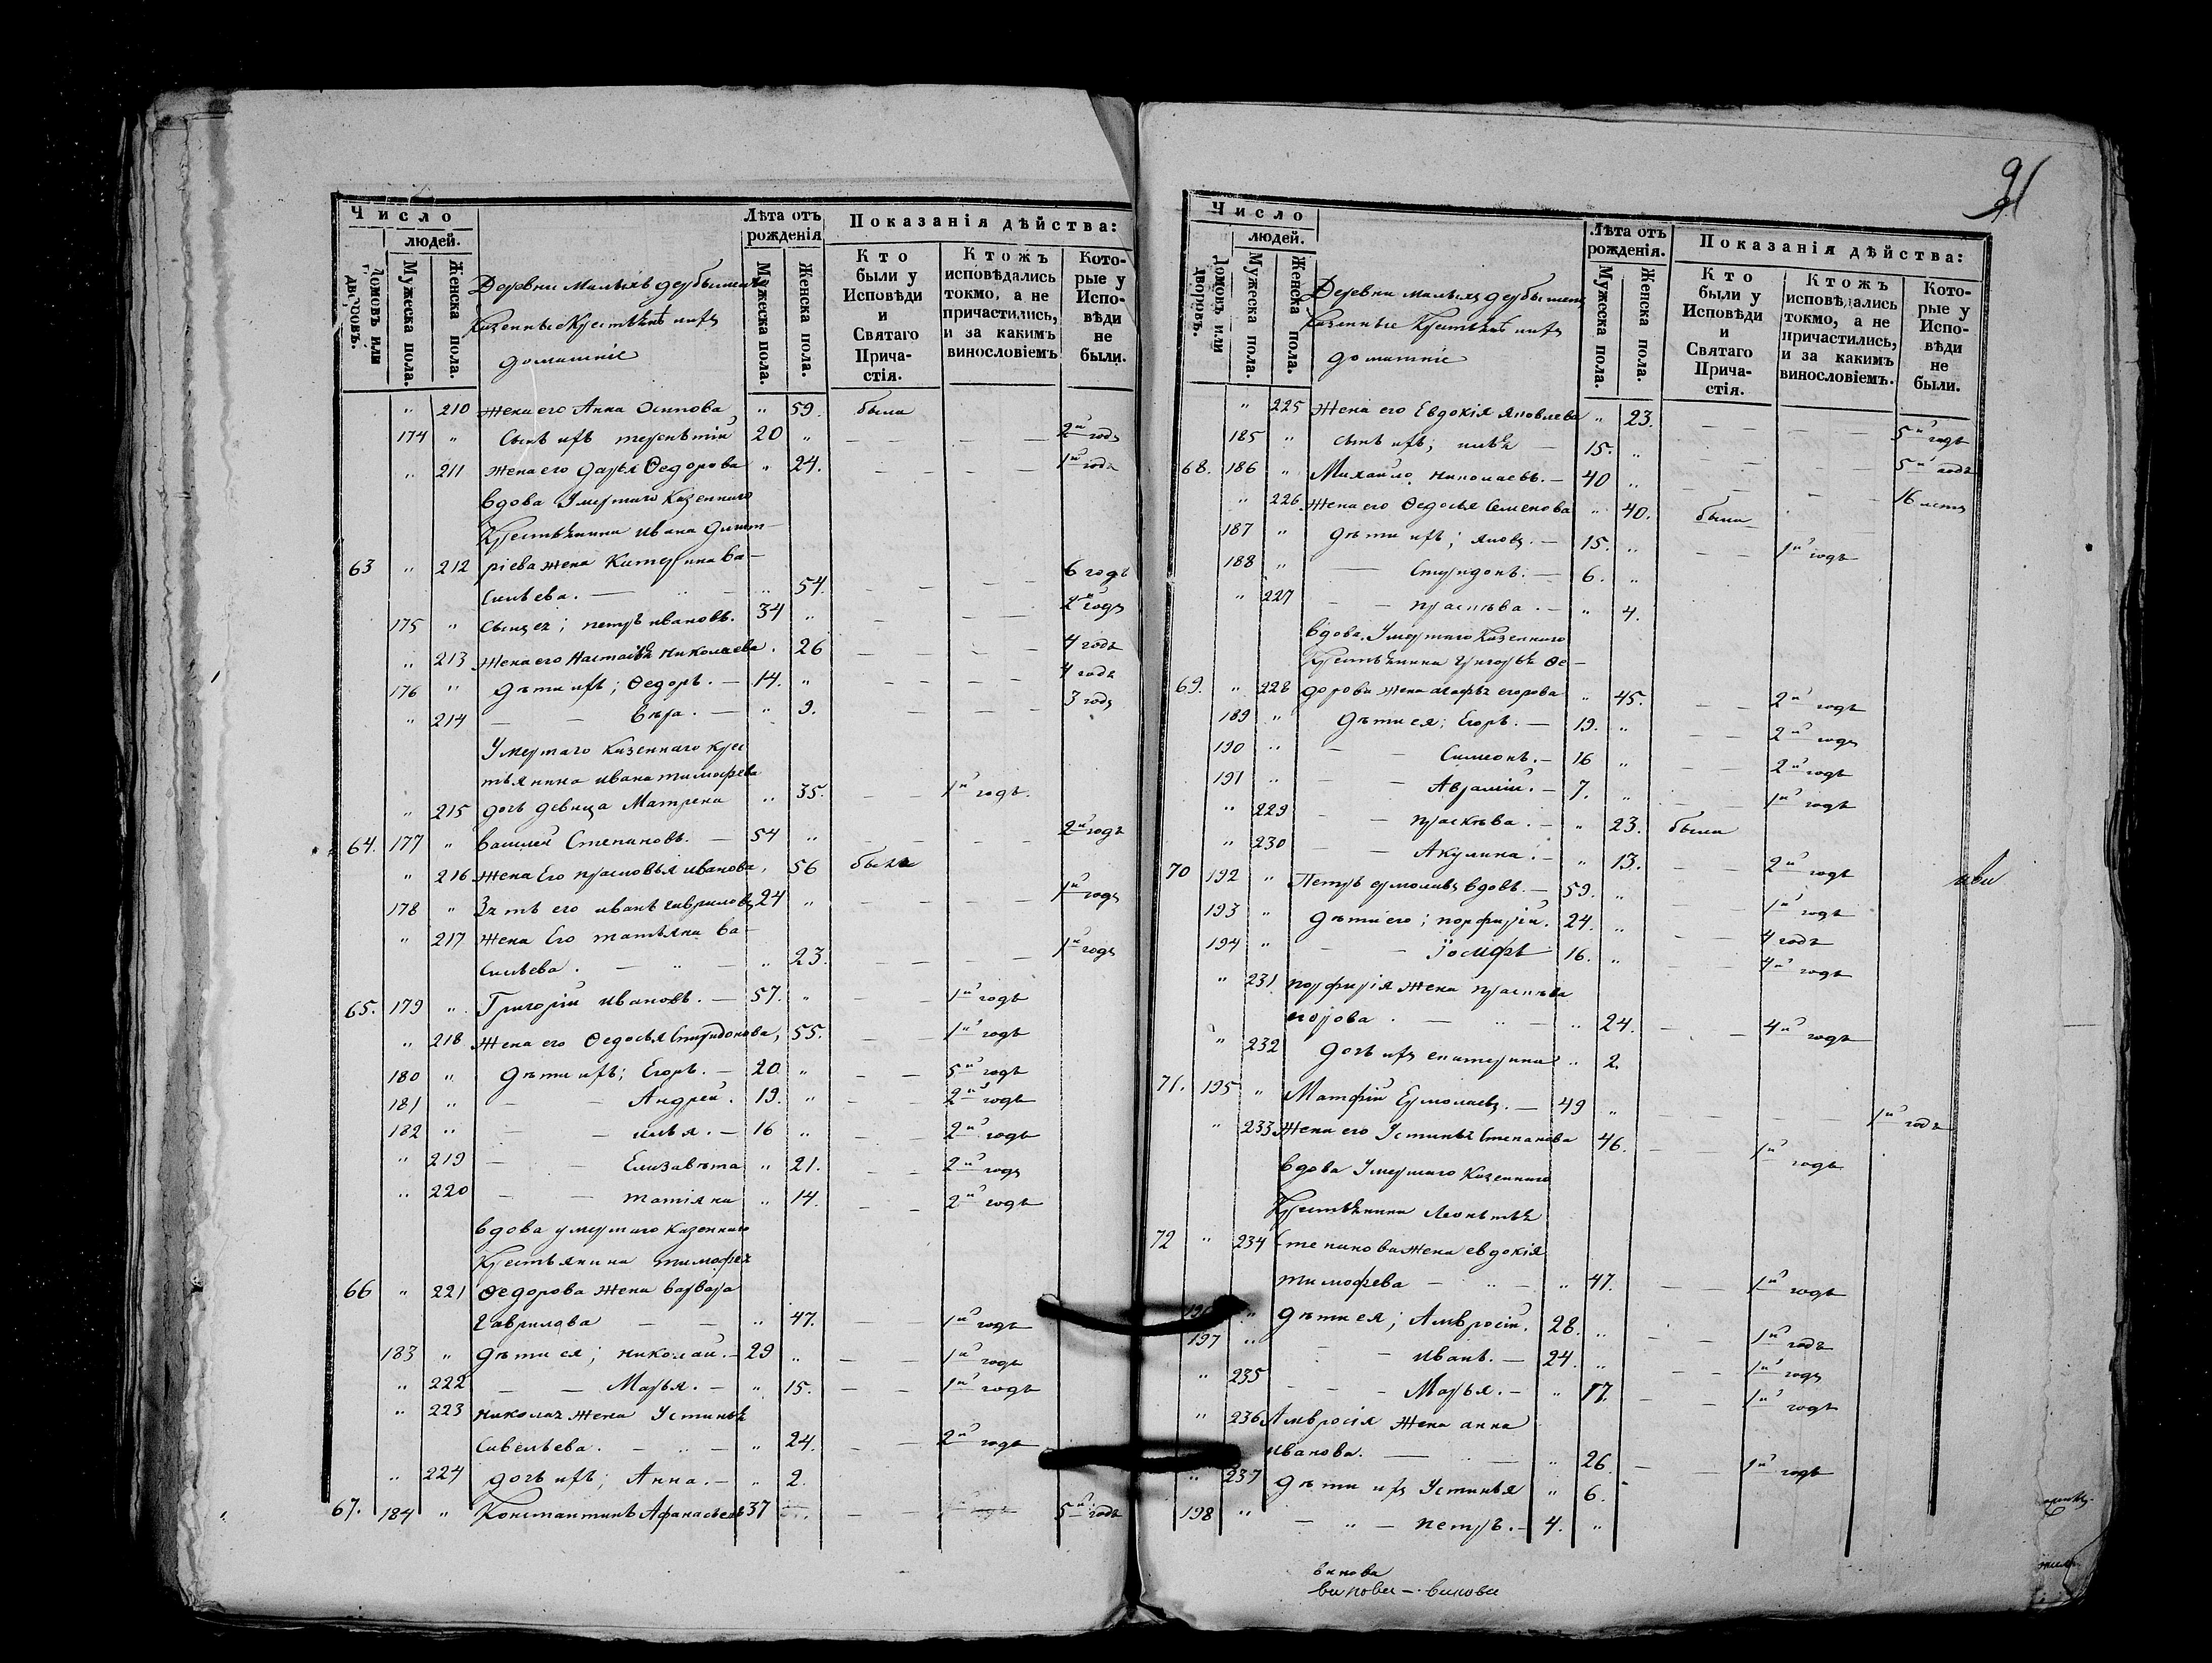 91
Число
людей.
Домовъ или дворовъ.
Мужеска пола.
Женска пола.
Деревни Малыхъ дербышекъ
Казенные Крестьяне и ихъ
домашніе
Лѣта отъ рожденія
Мужеска пола.
Женска пола.
Показанія дѣйства:
Кто были у Исповѣди и Святаго Причастія.
Ктожъ исповѣдались токмо, а не причастились, и за какимъ винословіемъ
Которые у Исповѣди не были.
" 210 жена его Анна Осипова " 59. была
174 " Сынъ ихъ терентій 20 " — — — — 2й годъ
" 211 жена его дарья Ѳедорова " 24. — — — — 1й годъ
вдова Умершаго Казеннаго
Крестьянина ивана дмит-
63 " 212 ріева жена Катерина Ва-
сильева. — " — " 54. — — — — 6 годъ
175 " сынъ ея; петръ ивановъ. 34 " — — — — 2й годъ
" 213 Жена его Настасья николаева. 26 — — — — 4 годъ
176 " дѣти ихъ; Ѳедоръ. — 14. " — — — — 4 годъ
" 214 — — Вѣра. — " 9. — — — — 3 годъ
Умершаго Казеннаго крес
тьянина ивана тимофева
" 215 дочь девица Матрена " 35. — — 1й годъ.
64. 177 " василей Степановъ. — 54 " — — — — 2й годъ
" 216 жена Его прасковья иванова, 56 была
178 " Зять его иванъ гавриловъ 24 " — — — — 1й годъ
" 217 жена Его татьяна ва-
сильева. — " — " 23. — — — — 1й годъ
65. 179 " Григорій ивановъ. — 57. " — — 1й годъ
" 218 Жена его Ѳедосья Спиридонова, 55. — — 1й годъ
180 " дѣти ихъ; Егоръ. — 20. " — — 5й годъ
181 " — — Андрей. 19. " — — 2й годъ
182 " — — илья. — 16 " — — 2й годъ
" 219 — — Елизавѣта " 21. — — 2й годъ
" 220 — — татіяна " 14. — — 2й годъ
вдова умершаго казеннаго
Крестьянина тимофея
66 " 221 Ѳедорова жена варвара
Гаврилова — — " 47. — — 1й годъ
183 " дѣти ея; николай. — 29 " — — 1й годъ
" 222 — — Марья. — " 15. — — 1й годъ
" 223 николая жена Устинья
Савельева. — " — " 24. — — 2й годъ
" 224 дочь ихъ; Анна. — " 2.
67. 184 " Константинъ Афанасьевъ 37 — — 5й годъ
Число
людей.
Домовъ или дворовъ.
Мужеска пола.
Женска пола.
Деревни малыхъ дербышекъ
Казенные Крестьяне и ихъ
домашніе
Лѣта отъ рожденія.
Мужеска пола.
Женска пола.
Показанія дѣйства:
Кто были у Исповѣди и Святаго Причастія.
Ктожъ исповѣдались токмо, а не причастились, и за какимъ винословіемъ.
Которые у Исповѣди не были.
" 225 Жена его Евдокія яковлева " 23. — — — — 5й годъ
185 " сынъ ихъ; илья — 15. " — — — — 5й годъ
68. 186 " Михайло николаевъ. — 40 " — — — — 16 летъ
" 226 Жена его Ѳедосья Семенова " 40. была
187 " дѣти ихъ; яковъ. — 15. " — — 1й годъ
188 " — Спиридонъ. — 6. "
" 227 — — праскѣва. — " 4.
вдова Умершаго Казеннаго
Крестьянина григорья Ѳе-
69. " 228 дорова жена агафья егорова " 45. — — 2й годъ
189 " дѣти ея; Егоръ. — 19. " — — 2й годъ
190 " — — Симеонъ. — 16 " — — 2й годъ
191 " — — Авраміи. — 7. " — — 1й годъ
" 229 — — праскѣва. — " 23. была
" 230 — — Акулина. — " 13. — — 2й годъ
70 192 " Петръ ермолаевъ вдовъ. — 59. " — — 1й годъ
193 " дѣти его; порфирій. 24. " — — 4 годъ
194 " — — Іосифъ 16. " — — 4й годъ
" 231 порфирія жена праскѣва
егорова. — " — " 24. — — 4й годъ
" 232 дочь ихъ екатерина " 2.
71. 195 " Матфій Ермолаевъ. — 49 " — — — — 1й годъ
" 233 Жена его Устинья Степанова 46. — — 1й годъ
вдова Умершаго Казеннаго
Крестьянина Леонтья
72 " 234 Степанова жена евдокія
тимофева — " — " 47. — — 1й годъ
196 " дѣти ея; Амвросій. 28. " — — 1й годъ
197 " — — иванъ. — 24. " — — 1й годъ
" 235 — — Марья. — " 17. — — 1й годъ
" 236 Амвросія жена анна
иванова. — " — " 26. — — 1й годъ
" 237 дѣти ихъ Устинья " 6.
198 " — " — петръ. — 4. "